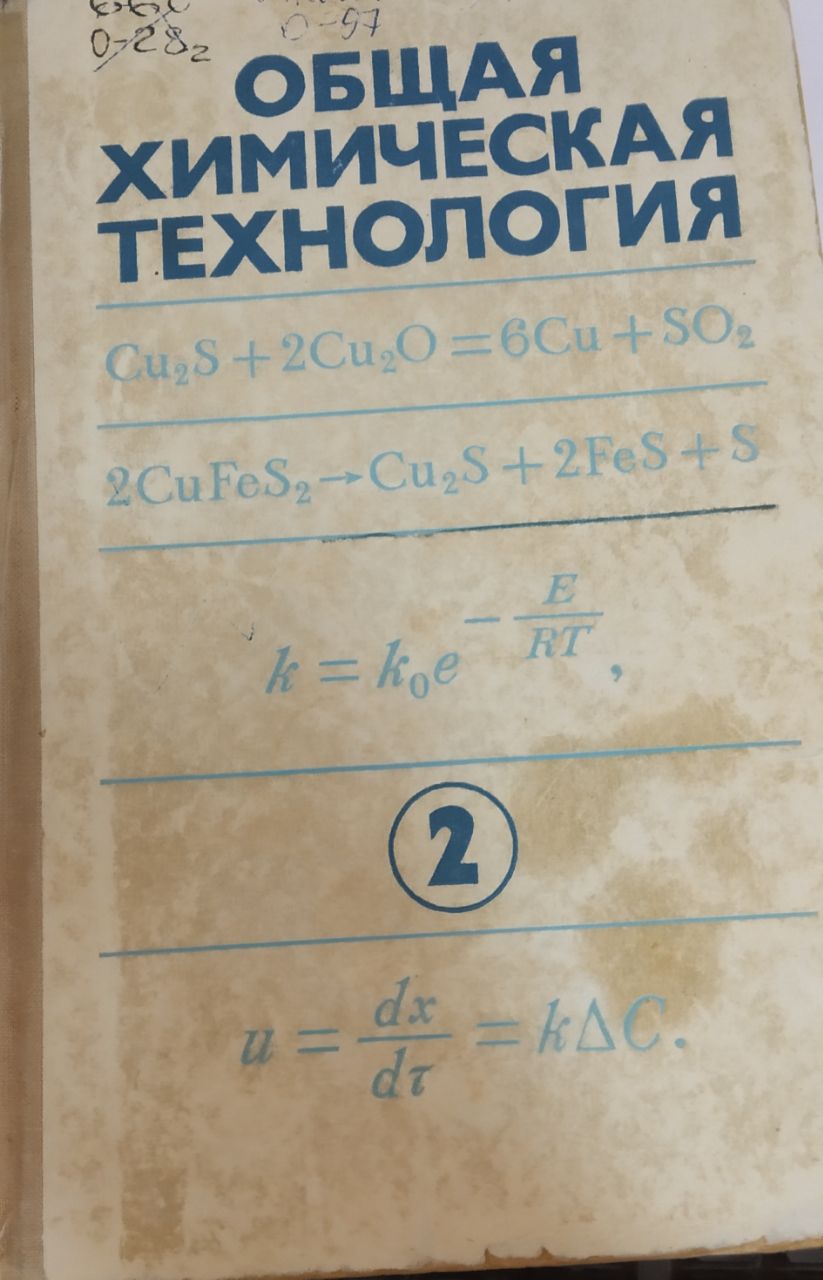 0-28₂
0-97
ОБЩАЯ
ХИМИЧЕСКАЯ
ТЕХНОЛОГИЯ
Cu₂S + 2Cu₂O = 6Cu + SO₂
2CuFeS₂ → Cu₂S + 2FeS + S
k = k₀e^(−E/RT),
2
u = dx/dτ = kΔC.